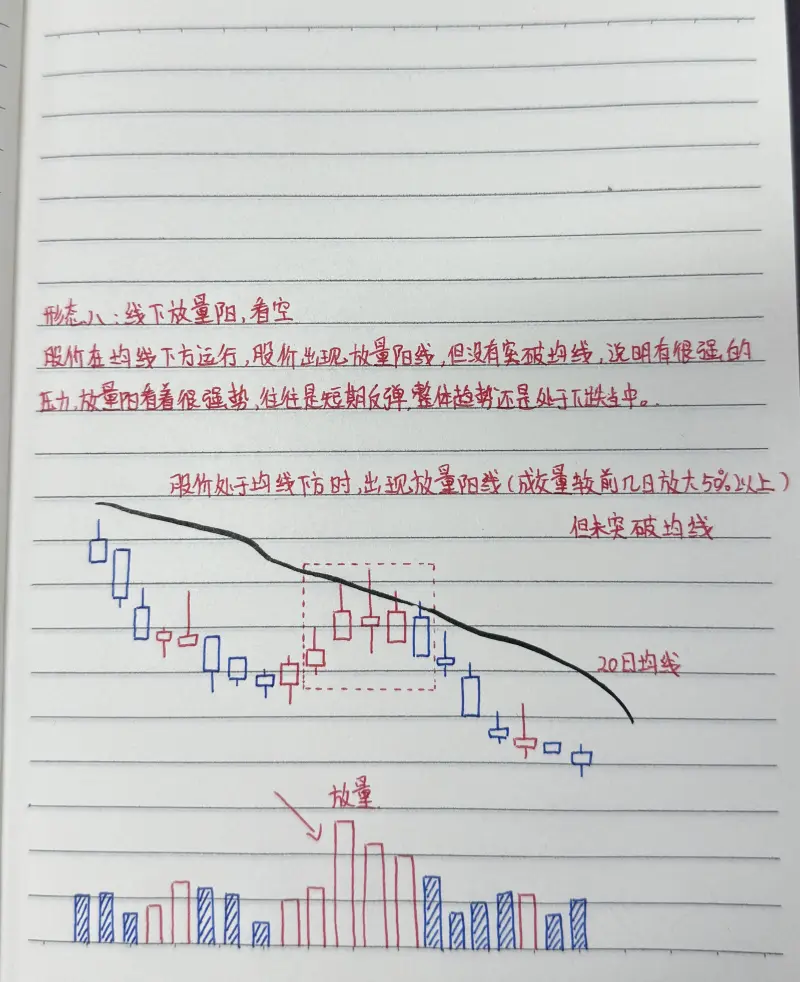 形态八:线下放量阳,看空
股价在均线下方运行,股价出现放量阳线,但没有突破均线,说明有很强的
压力,放量阳看着很强势,往往是短期反弹,整体趋势还是处于下跌当中。
股价处于均线下方时,出现放量阳线(成交量较前几日放大50%以上)
但未突破均线
20日均线
放量